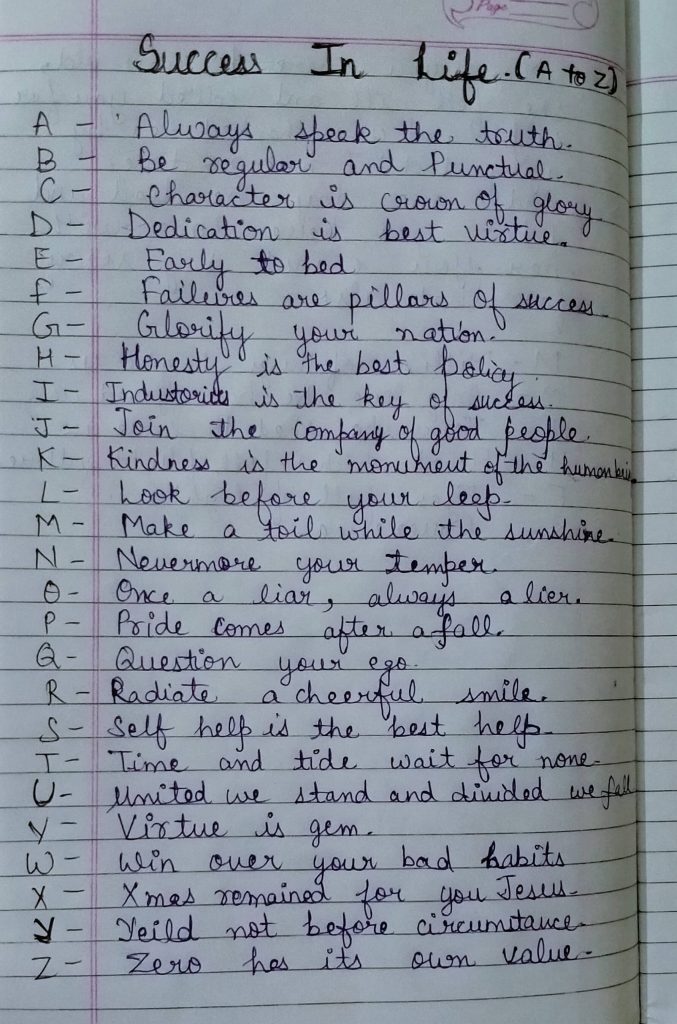 Page
Success In Life. (A to Z)
A - Always speak the truth.
B - Be regular and Punctual.
C - Character is crown of glory
D - Dedication is best virtue.
E - Early to bed
F - Failures are pillars of success
G - Glorify your nation.
H - Honesty is the best policy.
I - is the key of success.
J - Join the company of good people.
K - Kindness is the monument of the human
L - Look before your leep.
M - Make a toil while the sunshine.
N - Nevermore your temper.
O - Once a liar, always a lier.
P - Pride comes after a fall.
Q - Question your ego.
R - Radiate a cheerful smile.
S - Self help is the best help.
T - Time and tide wait for none.
U - United we stand and divided we fall
V - Virtue is gem.
W - Win over your bad habits
X - Xmas remained for you Jesus.
Y - Yeild not before circumstance.
Z - Zero hes its own value.